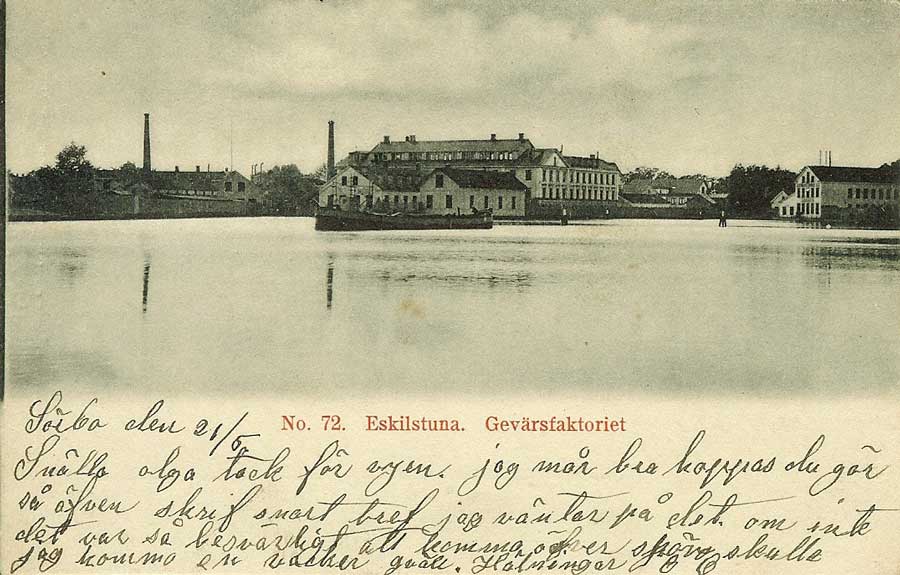 No. 72. Eskilstuna. Gevärsfaktoriet
Sörbo den 21/6
Snälla olga tack för vyen. jag mår bra hoppas du gör
så äfven skrif snart bref jag väntar på det. om inte
det var så besvärligt att komma öfver sjön skulle
jag komma en vacker qväll. Hälsningar